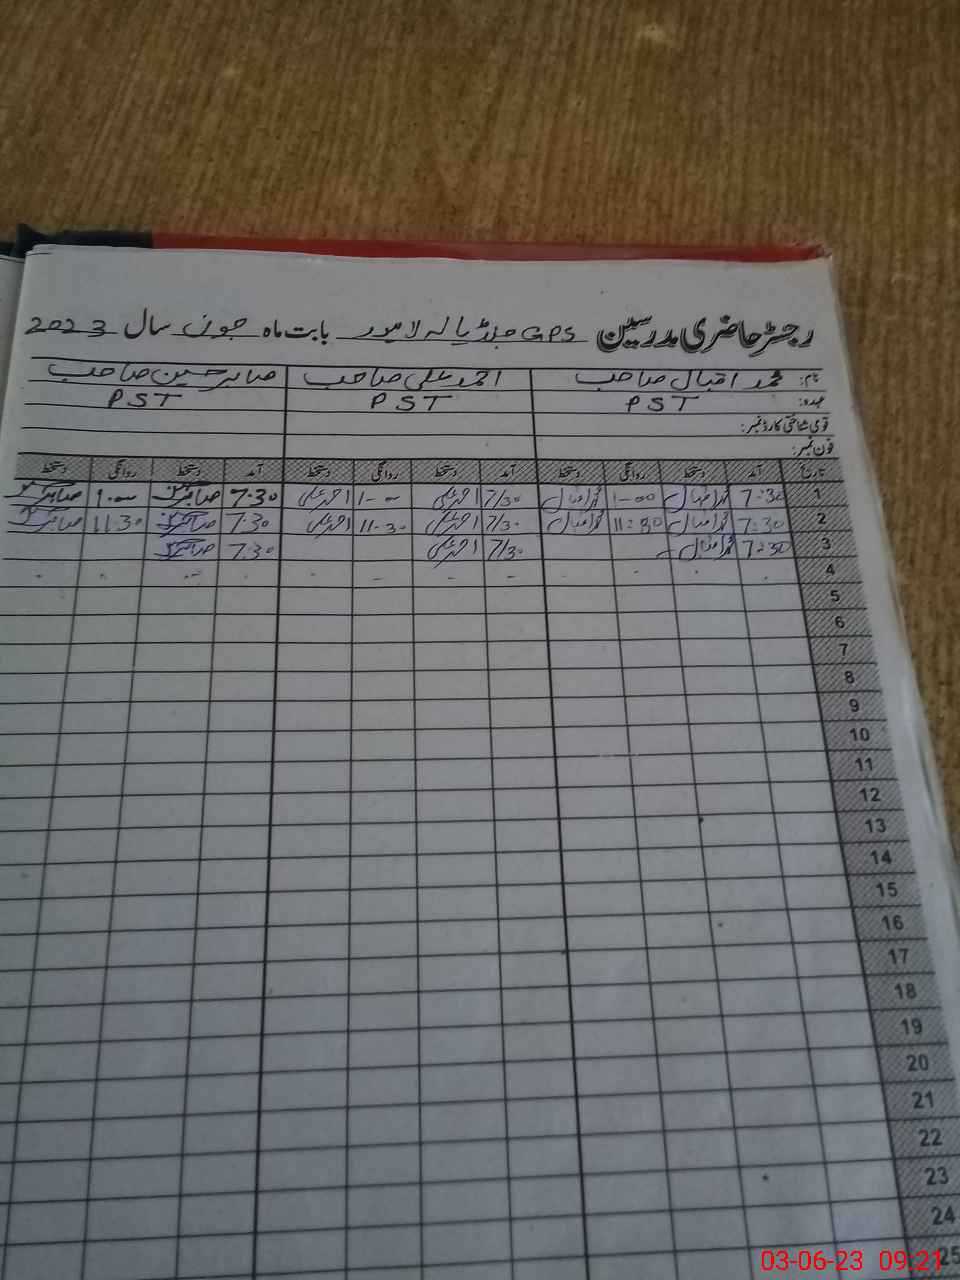 رجسٹر حاضری مدرسین GPS جنڈیالہ لاہور بابت ماہ جون سال 2023
نام: محمد اقبال صاحب احمد علی صاحب صابر حسین صاحب
عہدہ: PST PST PST
قومی شناختی کارڈ نمبر:
فون نمبر:
تاریخ آمد دستخط روانگی دستخط آمد دستخط روانگی دستخط آمد دستخط روانگی دستخط
1 7:30 محمد اقبال 1-00 محمد اقبال 7/30 احمد علی 1-00 احمد علی 7.30 صابر حسین 1.00 صابر حسین
2 7:30 محمد اقبال 11:30 محمد اقبال 7/30 احمد علی 11-30 احمد علی 7.30 صابر حسین 11.30 صابر حسین
3 7:30 محمد اقبال 7/30 احمد علی 7.30 صابر حسین
4
5
6
7
8
9
10
11
12
13
14
15
16
17
18
19
20
21
22
23
24
25
03-06-23 09:21